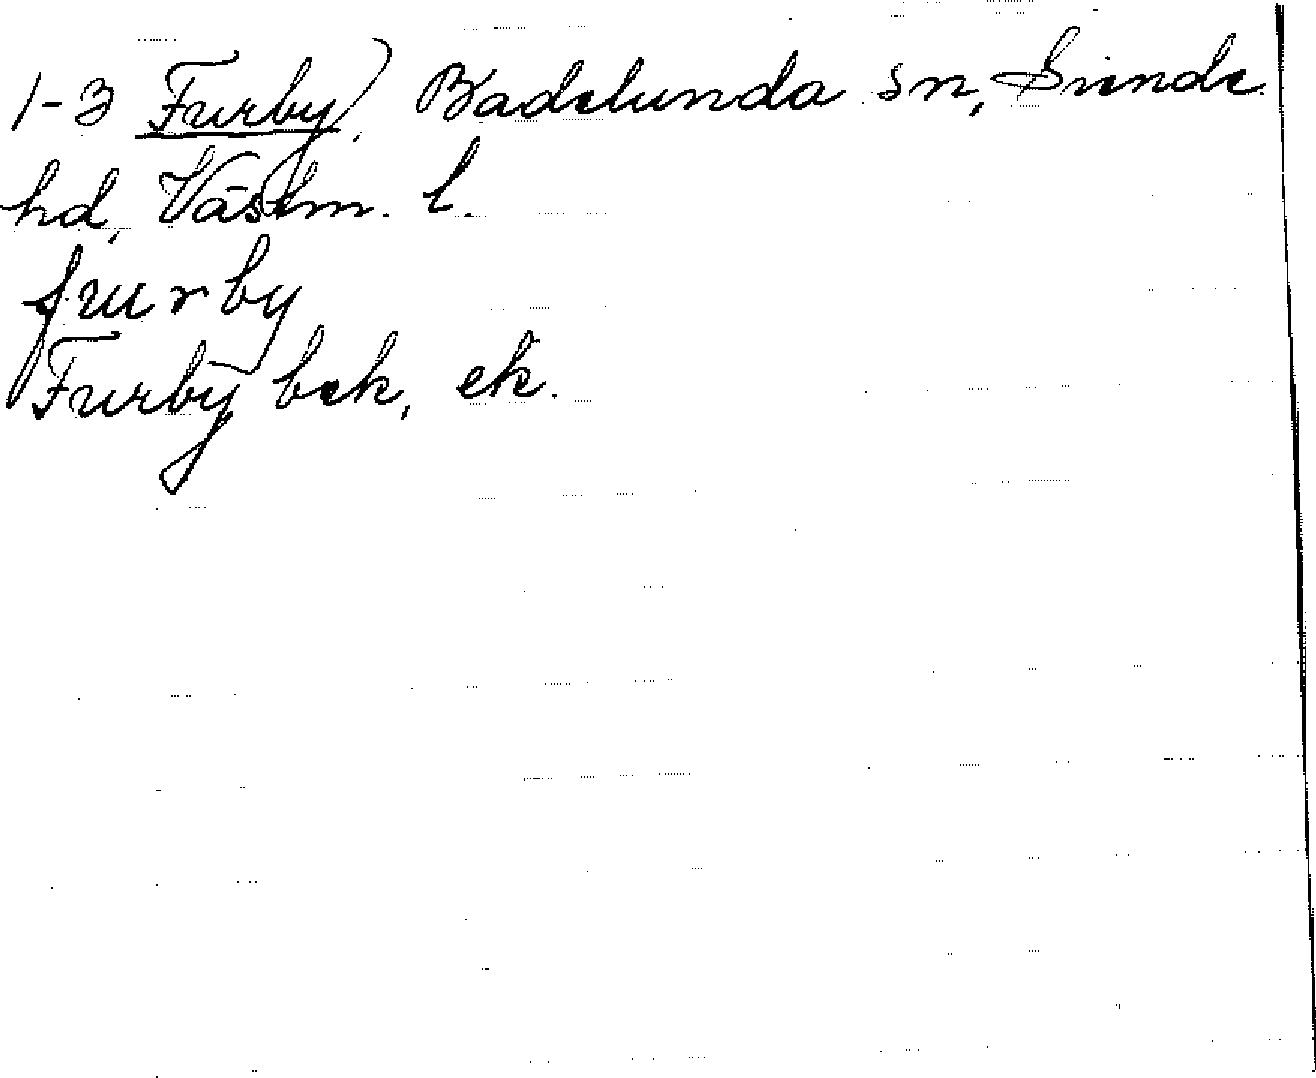 1-3 Furby, Badelunda sn, Siende
hd, Västm. l.
furby
Furby bek, ek.